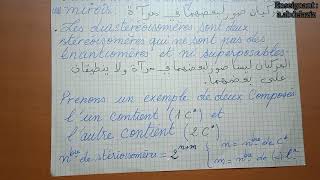 Enseignant :
a.abdelaziz
miroir. ليسا صور لبعضهما في مرآة
. Les diastéréoisomères sont deux
stéréoisomères qui ne sont pas des
énantiomères et Ni superposables.
المركبان ليسا صور لبعضهما في مرآة ولا ينطبقان
على بعضهما.
Prenons un exemple de deux composés
l'un contient (1 C*) et
l'autre contient (2 C*)
nbre de stérioisomère = 2^(n+m) { n = nbre de C*
m = nbre de (=)